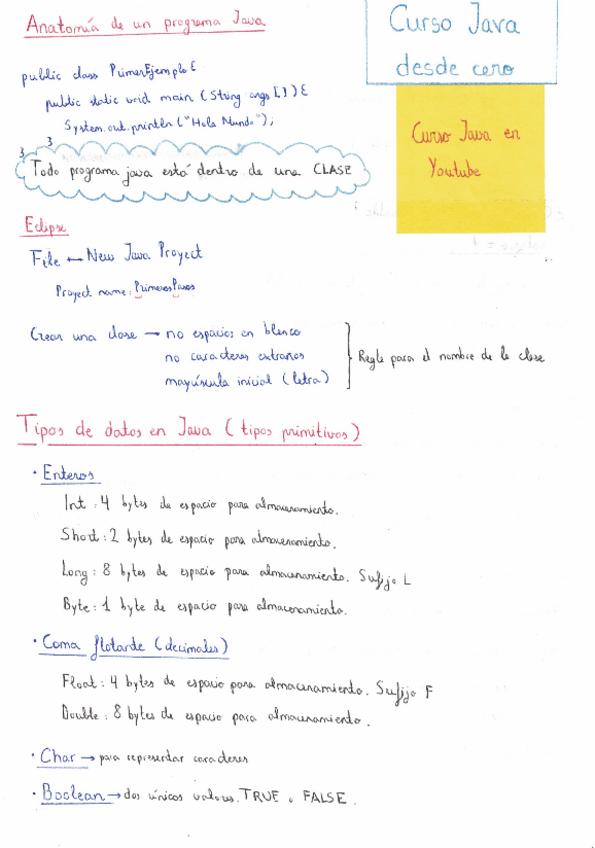 Anatomía de un programa Java
Curso Java
desde cero
public class PrimerEjemplo {
public static void main (String args []) {
System.out.println ("Hola Mundo");
}
}
Curso Java en
Youtube
Todo programa java está dentro de una CLASE
Eclipse
File ← New Java Proyect
Proyect name: PrimerosPasos
Crear una clase → no espacios en blanco
no caracteres extraños
mayúscula inicial (letra)
Regla para el nombre de la clase
Tipos de datos en Java (tipos primitivos)
· Enteros
Int : 4 bytes de espacio para almacenamiento.
Short : 2 bytes de espacio para almacenamiento.
Long : 8 bytes de espacio para almacenamiento. Sufijo L
Byte : 1 byte de espacio para almacenamiento.
· Coma flotante (decimales)
Float : 4 bytes de espacio para almacenamiento. Sufijo F
Double : 8 bytes de espacio para almacenamiento.
· Char → para representar caracteres
· Boolean → dos únicos valores. TRUE o FALSE.